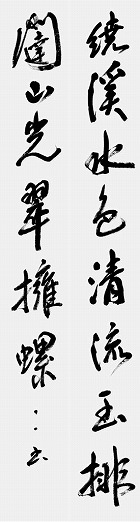 繞溪水色清流玉排
闥山光翠擁螺
書